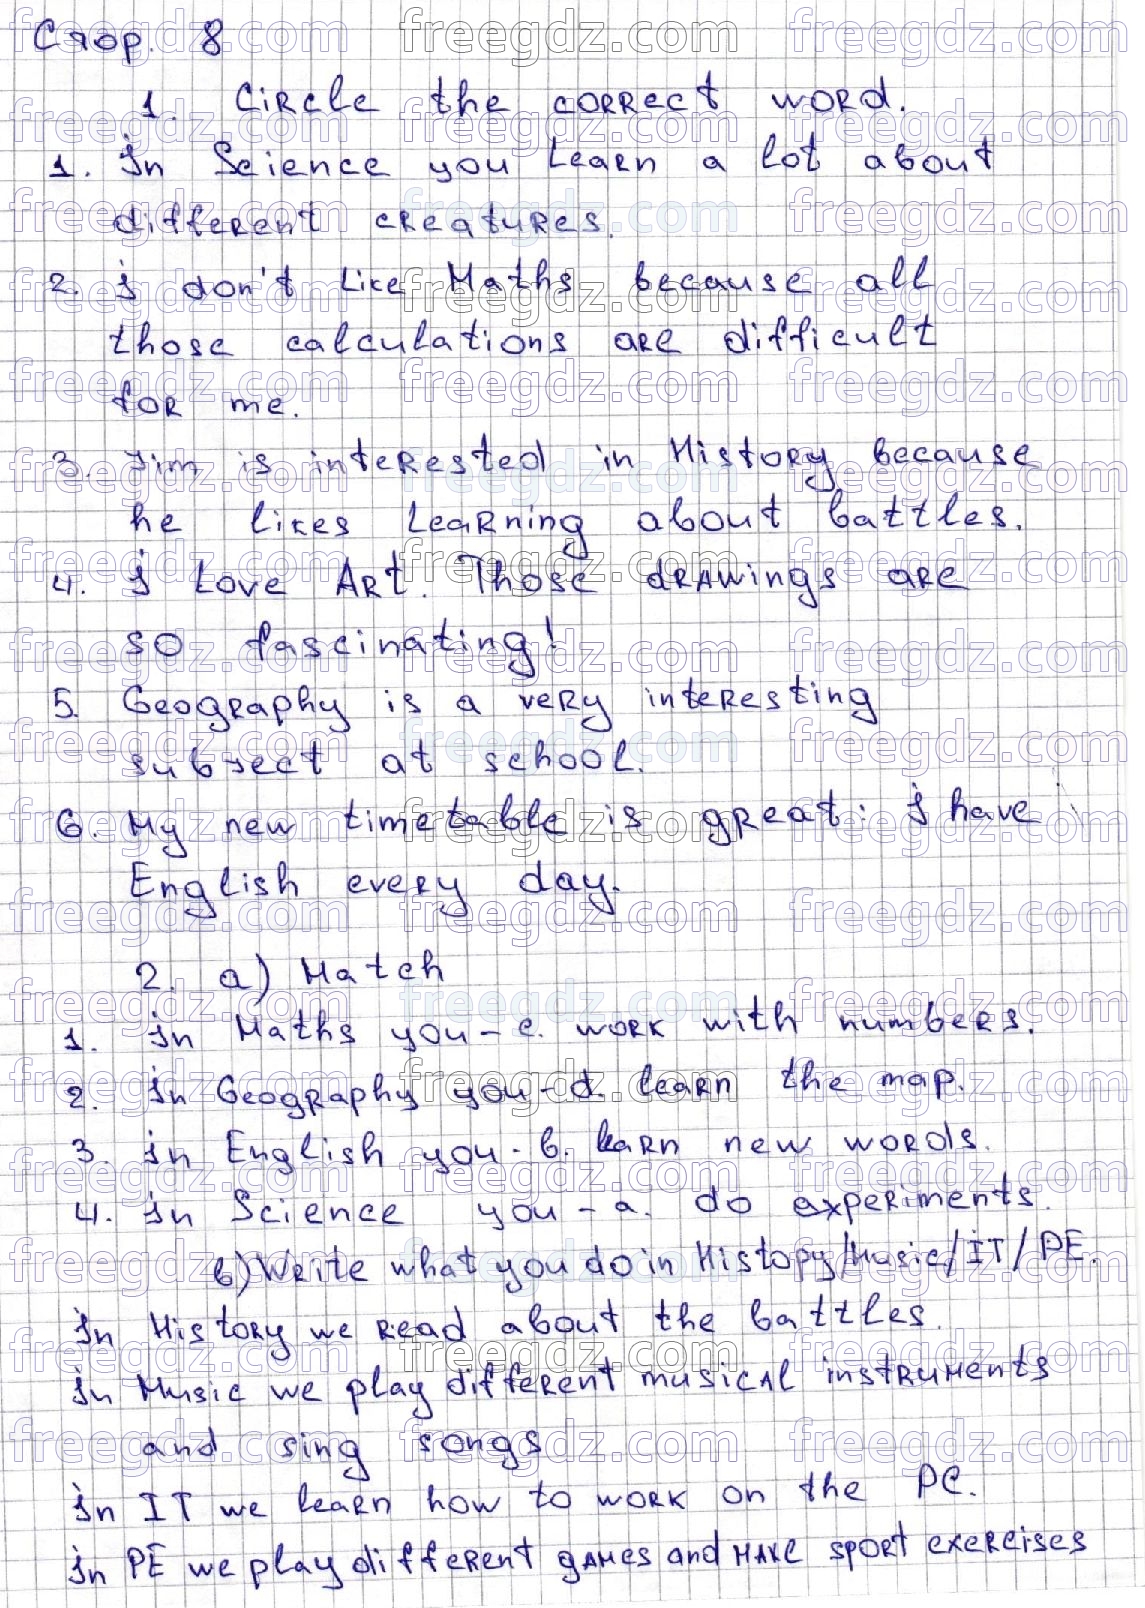 Стор. 8
1. Circle the correct word.
1. In Science you learn a lot about
different creatures.
2. I don't like Maths because all
those calculations are difficult
for me.
3. Jim is interested in History because
he likes learning about battles.
4. I love Art. Those drawings are
so fascinating!
5. Geography is a very interesting
subject at school.
6. My new timetable is great: I have
English every day.
2. a) Match
1. In Maths you - c. work with numbers.
2. In Geography you - d. learn the map.
3. In English you - b. learn new words.
4. In Science you - a. do experiments.
b) Write what you do in History/Music/IT/PE.
In History we read about the battles.
In Music we play different musical instruments
and sing songs
In IT we learn how to work on the PC.
In PE we play different games and make sport exercises
freegdz.com